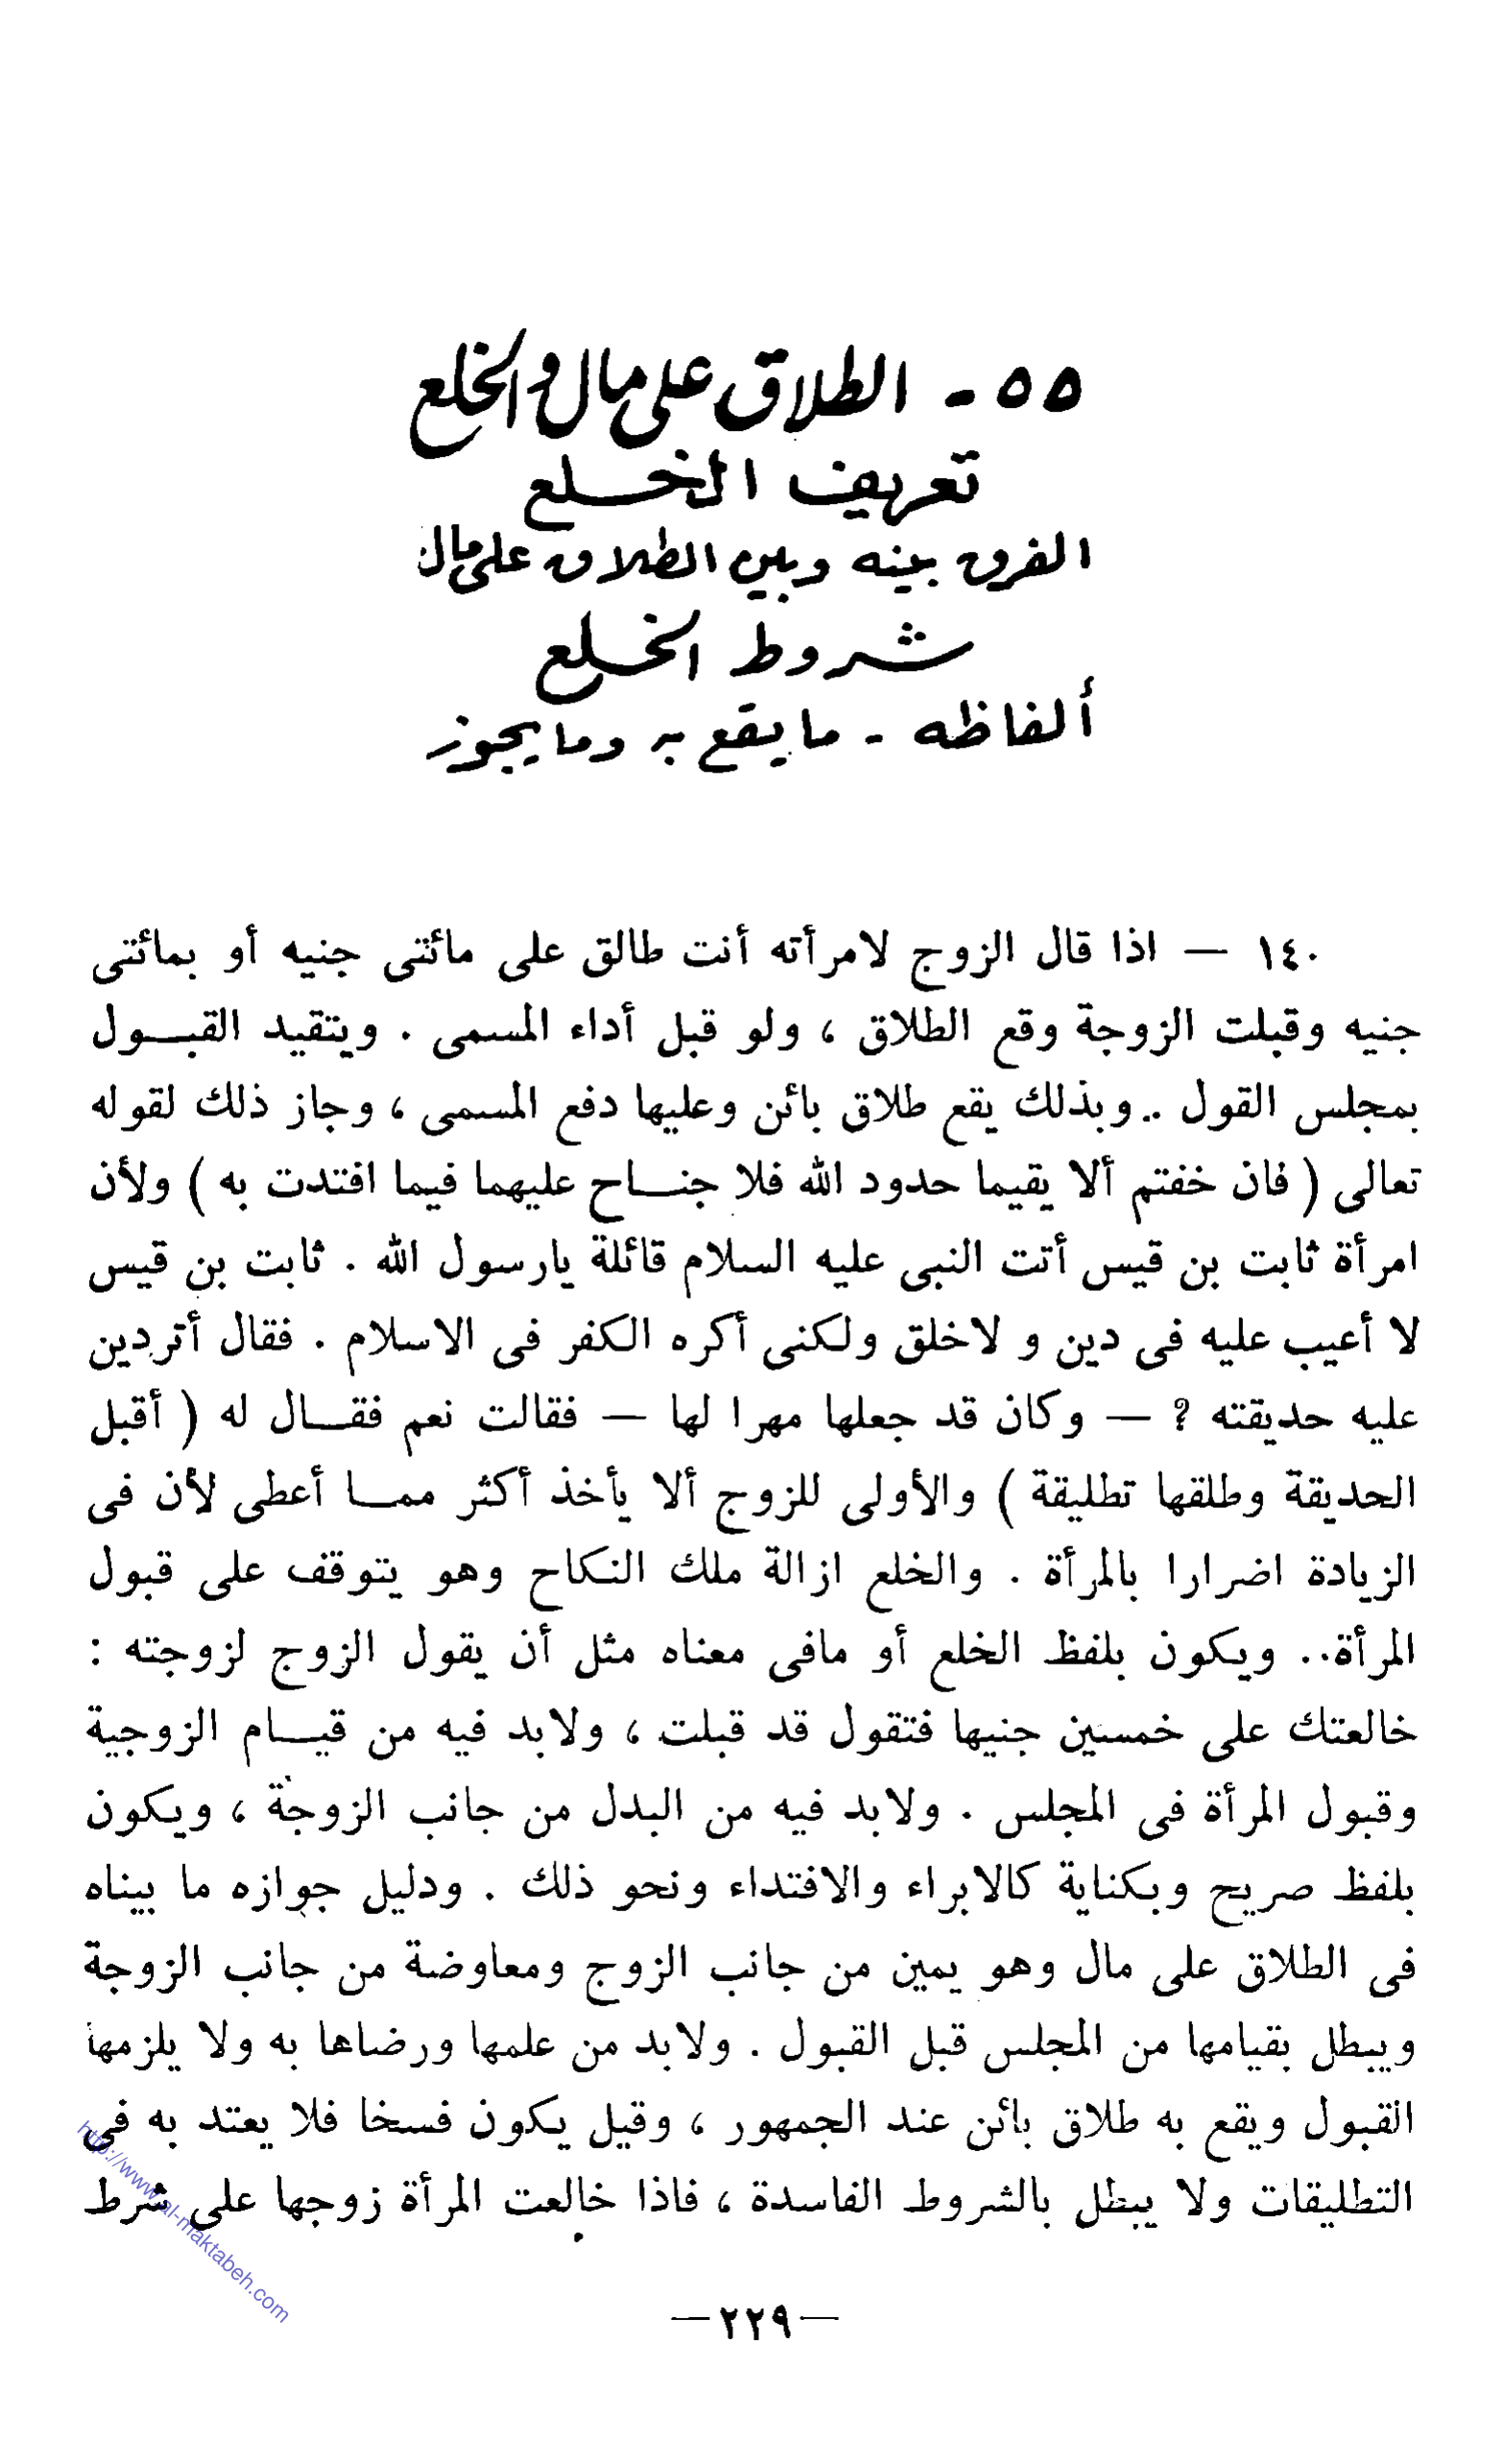 ٥٥ - الطلاق على مال والخلع
تعريف الخلع
الفرق بينه وبين الطلاق على مال
شروط الخلع
ألفاظه - ما يقع به وما يجوز
١٤٠ — اذا قال الزوج لامرأته أنت طالق على مائتى جنيه أو بمائتى
جنيه وقبلت الزوجة وقع الطلاق ، ولو قبل أداء المسمى . ويتقيد القبول
بمجلس القول .. وبذلك يقع طلاق بائن وعليها دفع المسمى ، وجاز ذلك لقوله
تعالى ( فان خفتم ألا يقيما حدود الله فلا جناح عليهما فيما افتدت به ) ولأن
امرأة ثابت بن قيس أتت النبى عليه السلام قائلة يارسول الله . ثابت بن قيس
لا أعيب عليه فى دين و لاخلق ولكنى أكره الكفر فى الاسلام . فقال أتردين
عليه حديقته ؟ — وكان قد جعلها مهرا لها — فقالت نعم فقال له ( أقبل
الحديقة وطلقها تطليقة ) والأولى للزوج ألا يأخذ أكثر مما أعطى لأن فى
الزيادة اضرارا بالمرأة . والخلع ازالة ملك النكاح وهو يتوقف على قبول
المرأة.. ويكون بلفظ الخلع أو مافى معناه مثل أن يقول الزوج لزوجته :
خالعتك على خمسين جنيها فتقول قد قبلت ، ولابد فيه من قيام الزوجية
وقبول المرأة فى المجلس . ولابد فيه من البدل من جانب الزوجة ، ويكون
بلفظ صريح وبكناية كالابراء والافتداء ونحو ذلك . ودليل جوازه ما بيناه
فى الطلاق على مال وهو يمين من جانب الزوج ومعاوضة من جانب الزوجة
ويبطل بقيامها من المجلس قبل القبول . ولابد من علمها ورضاها به ولا يلزمها
القبول ويقع به طلاق بائن عند الجمهور ، وقيل يكون فسخا فلا يعتد به فى
التطليقات ولا يبطل بالشروط الفاسدة ، فاذا خالعت المرأة زوجها على شرط
—٢٢٩—
http://www.al-maktabeh.com